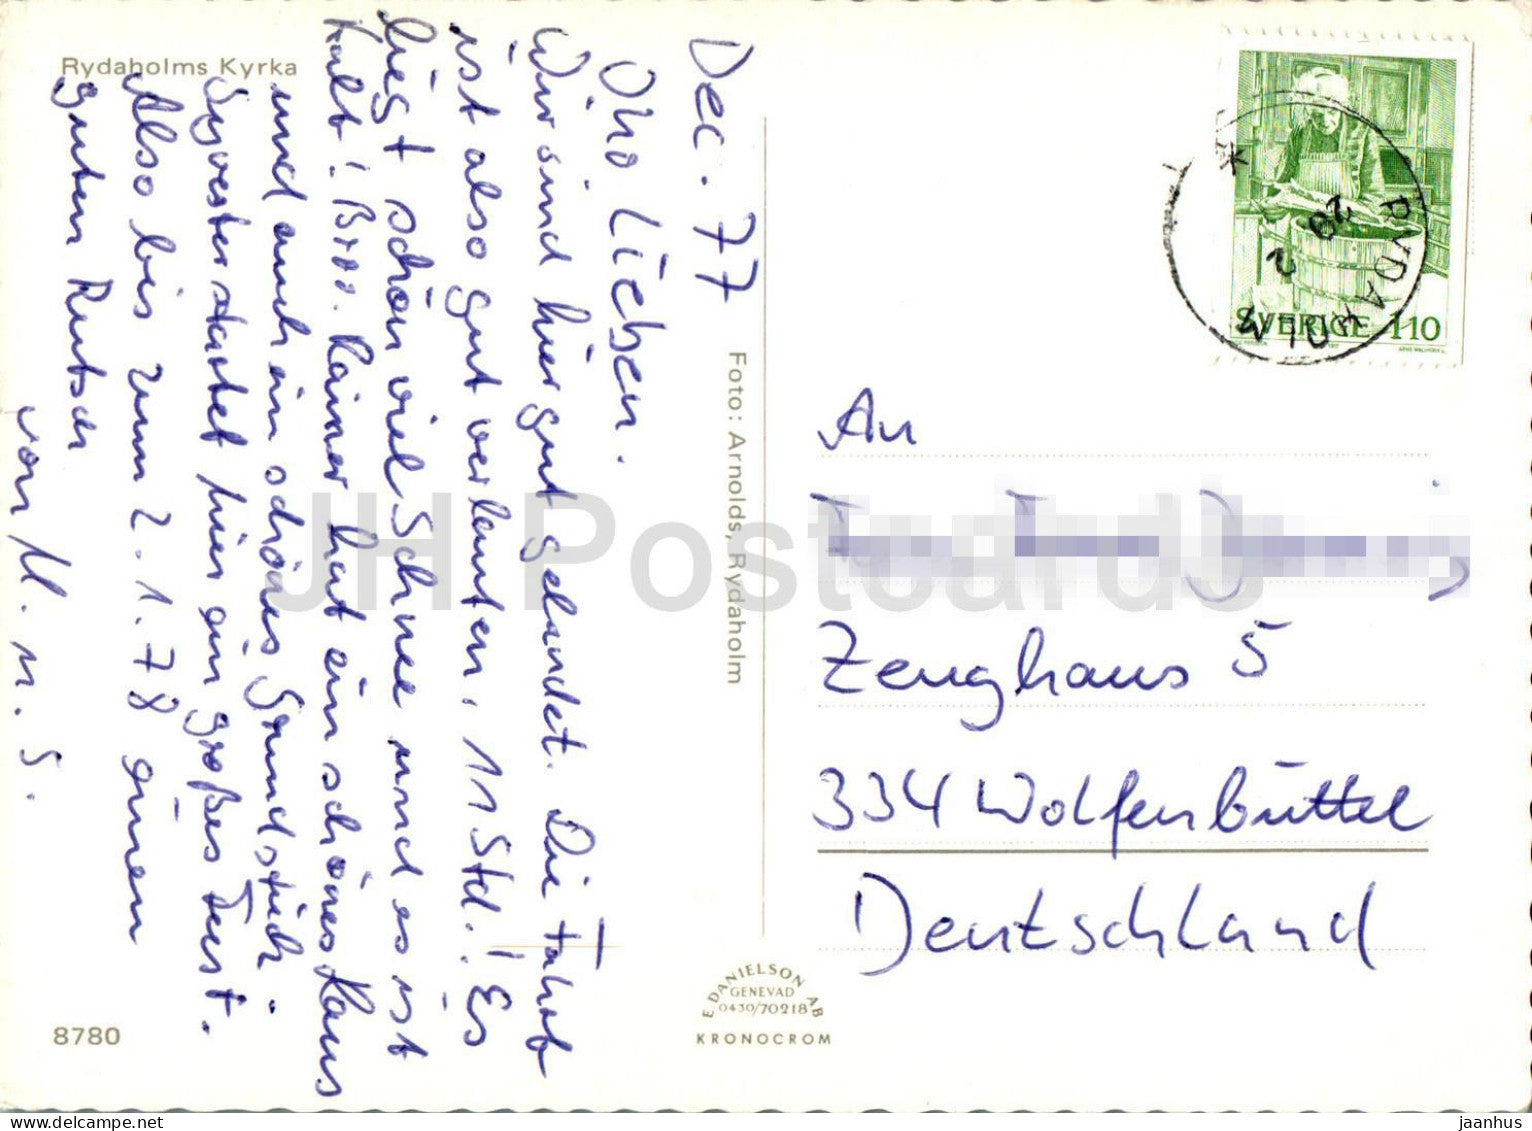 Rydaholms Kyrka
Dec. 77
Oho Lieben.
Wir sind hier gut gelandet. Die Fahrt
ist also gut verlaufen, 11 Std.! Es
liegt schön viel Schnee und es ist
kalt! Brrr. Rainer hat ein schönes Haus
und auch ein schönes Grundstück.
Sylvester startet hier ein großes Fest.
Also bis zum 2.1.78 einen
guten Rutsch
von M. u. S.
Foto: Arnolds, Rydaholm
8780
E. DANIELSON AB
GENEVAD
0430/70218
KRONOCROM
SVERIGE 110
RYDAHOLM
29
An
Zeughaus 5
334 Wolfenbüttel
Deutschland
JH Postcards
jaanhus
https://www.delcampe.net